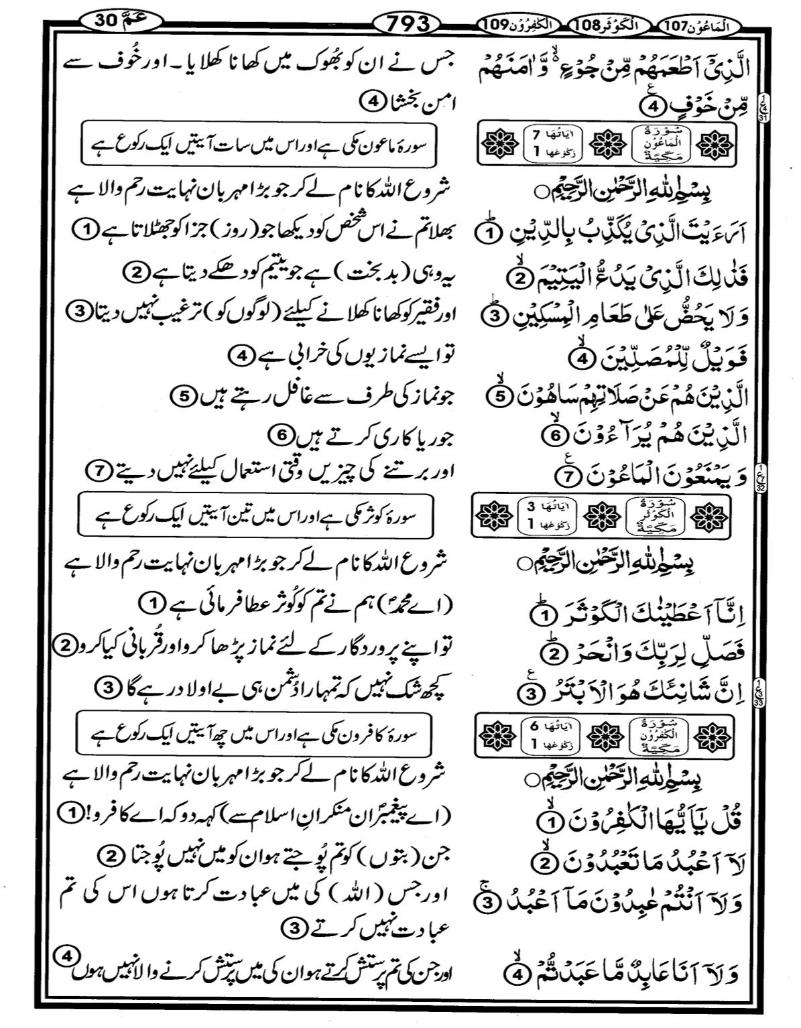 الْمَاعُوْن107 الْكَوْثَر108 الْكٰفِرُوْن109 793 عَمَّ 30
الَّذِیْۤ اَطْعَمَهُمْ مِّنْ جُوْعٍ ۙ۬ وَّاٰمَنَهُمْ
مِّنْ خَوْفٍ ۠ ④
جس نے ان کو بُھوک میں کھانا کھلایا ۔ اور خُوف سے
امن بخشا ④
سُوْرَةُ الْمَاعُوْنِ مَكِّيَّةٌ اٰيَاتُهَا 7 رُكُوْعُهَا 1
سورۂ ماعون مکی ہے اور اس میں سات آیتیں ایک رکوع ہے
بِسْمِ اللهِ الرَّحْمٰنِ الرَّحِيْمِ ○
شروع اللہ کا نام لے کر جو بڑا مہربان نہایت رحم والا ہے
اَرَءَیْتَ الَّذِیْ یُكَذِّبُ بِالدِّیْنِ ؕ ①
بھلا تم نے اس شخص کو دیکھا جو (روز) جزا کو جھٹلاتا ہے ①
فَذٰلِكَ الَّذِیْ یَدُعُّ الْیَتِیْمَ ۙ ②
یہ وہی (بدبخت) ہے جو یتیم کو دھکے دیتا ہے ②
وَلَا یَحُضُّ عَلٰی طَعَامِ الْمِسْكِیْنِ ؕ ③
اور فقیر کو کھانا کھلانے کیلئے (لوگوں کو) ترغیب نہیں دیتا ③
فَوَیْلٌ لِّلْمُصَلِّیْنَ ۙ ④
تو ایسے نمازیوں کی خرابی ہے ④
الَّذِیْنَ هُمْ عَنْ صَلَاتِهِمْ سَاهُوْنَ ۙ ⑤
جو نماز کی طرف سے غافل رہتے ہیں ⑤
الَّذِیْنَ هُمْ یُرَآءُوْنَ ۙ ⑥
جو ریا کاری کرتے ہیں ⑥
وَیَمْنَعُوْنَ الْمَاعُوْنَ ۠ ⑦
اور برتنے کی چیزیں وقتی استعمال کیلئے نہیں دیتے ⑦
سُوْرَةُ الْكَوْثَرِ مَكِّيَّةٌ اٰيَاتُهَا 3 رُكُوْعُهَا 1
سورۂ کوثر مکی ہے اور اس میں تین آیتیں ایک رکوع ہے
بِسْمِ اللهِ الرَّحْمٰنِ الرَّحِيْمِ ○
شروع اللہ کا نام لے کر جو بڑا مہربان نہایت رحم والا ہے
اِنَّاۤ اَعْطَیْنٰكَ الْكَوْثَرَ ؕ ①
(اے محمدؐ) ہم نے تم کو کُوثر عطا فرمائی ہے ①
فَصَلِّ لِرَبِّكَ وَانْحَرْ ؕ ②
تو اپنے پروردگار کے لئے نماز پڑھا کرو اور قُربانی کیا کرو ②
اِنَّ شَانِئَكَ هُوَ الْاَبْتَرُ ۠ ③
کچھ شک نہیں کہ تمہارا دُشمن ہی بے اولاد رہے گا ③
سُوْرَةُ الْكٰفِرُوْنَ مَكِّيَّةٌ اٰيَاتُهَا 6 رُكُوْعُهَا 1
سورۂ کافرون مکی ہے اور اس میں چھ آیتیں ایک رکوع ہے
بِسْمِ اللهِ الرَّحْمٰنِ الرَّحِيْمِ ○
شروع اللہ کا نام لے کر جو بڑا مہربان نہایت رحم والا ہے
قُلْ یٰۤاَیُّهَا الْكٰفِرُوْنَ ۙ ①
(اے پیغمبرؐ ان منکرانِ اسلام سے) کہہ دو کہ اے کافرو! ①
لَاۤ اَعْبُدُ مَا تَعْبُدُوْنَ ۙ ②
جن (بتوں) کو تم پُوجتے ہو ان کو میں نہیں پُوجتا ②
وَلَاۤ اَنْتُمْ عٰبِدُوْنَ مَاۤ اَعْبُدُ ۚ ③
اور جس (اللہ) کی میں عبادت کرتا ہوں اس کی تم
عبادت نہیں کرتے ③
وَلَاۤ اَنَا عَابِدٌ مَّا عَبَدْتُّمْ ۙ ④
اور جن کی تم پرستش کرتے ہو ان کی میں پرستش کرنے والا نہیں ہوں ④